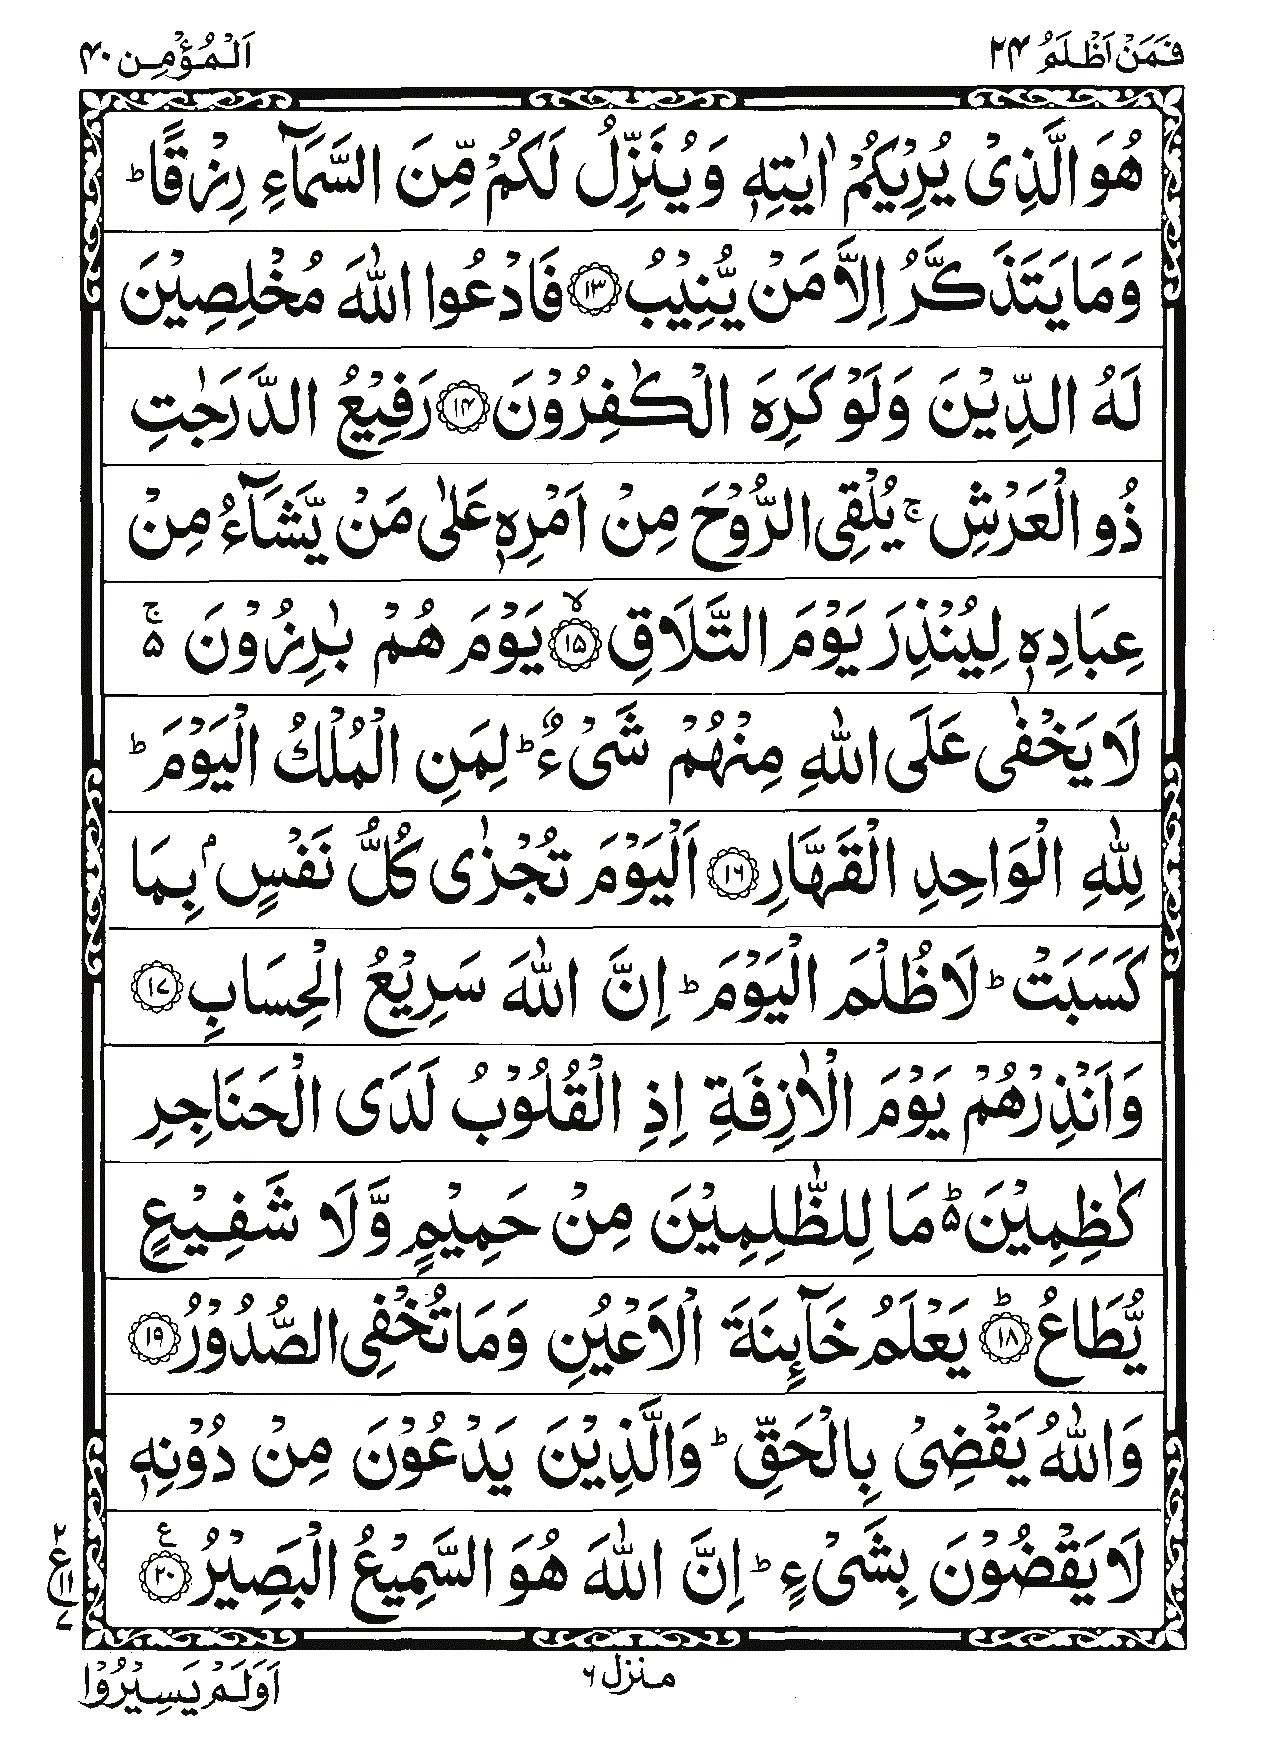 فَمَنْ اَظْلَمُ ۲۴
اَلْمُؤْمِن ۴۰
هُوَ الَّذِیْ یُرِیْكُمْ اٰیٰتِهٖ وَیُنَزِّلُ لَكُمْ مِّنَ السَّمَآءِ رِزْقًا ؕ
وَمَا یَتَذَكَّرُ اِلَّا مَنْ یُّنِیْبُ ﴿۱۳﴾ فَادْعُوا اللّٰهَ مُخْلِصِیْنَ
لَهُ الدِّیْنَ وَلَوْ كَرِهَ الْكٰفِرُوْنَ ﴿۱۴﴾ رَفِیْعُ الدَّرَجٰتِ
ذُو الْعَرْشِ ۚ یُلْقِی الرُّوْحَ مِنْ اَمْرِهٖ عَلٰی مَنْ یَّشَآءُ مِنْ
عِبَادِهٖ لِیُنْذِرَ یَوْمَ التَّلَاقِ ﴿۱۵﴾ۙ یَوْمَ هُمْ بٰرِزُوْنَ ۵ۚ
لَا یَخْفٰی عَلَی اللّٰهِ مِنْهُمْ شَیْءٌ ؕ لِمَنِ الْمُلْكُ الْیَوْمَ ؕ
لِلّٰهِ الْوَاحِدِ الْقَهَّارِ ﴿۱۶﴾ اَلْیَوْمَ تُجْزٰی كُلُّ نَفْسٍۭ بِمَا
كَسَبَتْ ؕ لَا ظُلْمَ الْیَوْمَ ؕ اِنَّ اللّٰهَ سَرِیْعُ الْحِسَابِ ﴿۱۷﴾
وَاَنْذِرْهُمْ یَوْمَ الْاٰزِفَةِ اِذِ الْقُلُوْبُ لَدَی الْحَنَاجِرِ
كٰظِمِیْنَ ۵ؕ مَا لِلظّٰلِمِیْنَ مِنْ حَمِیْمٍ وَّلَا شَفِیْعٍ
یُّطَاعُ ﴿۱۸﴾ؕ یَعْلَمُ خَآئِنَةَ الْاَعْیُنِ وَمَا تُخْفِی الصُّدُوْرُ ﴿۱۹﴾
وَاللّٰهُ یَقْضِیْ بِالْحَقِّ ؕ وَالَّذِیْنَ یَدْعُوْنَ مِنْ دُوْنِهٖ
لَا یَقْضُوْنَ بِشَیْءٍ ؕ اِنَّ اللّٰهَ هُوَ السَّمِیْعُ الْبَصِیْرُ ﴿۲۰﴾ع
۲ ع ۱۱ ۷
منزل ۶
اَوَلَمْ یَسِیْرُوْا